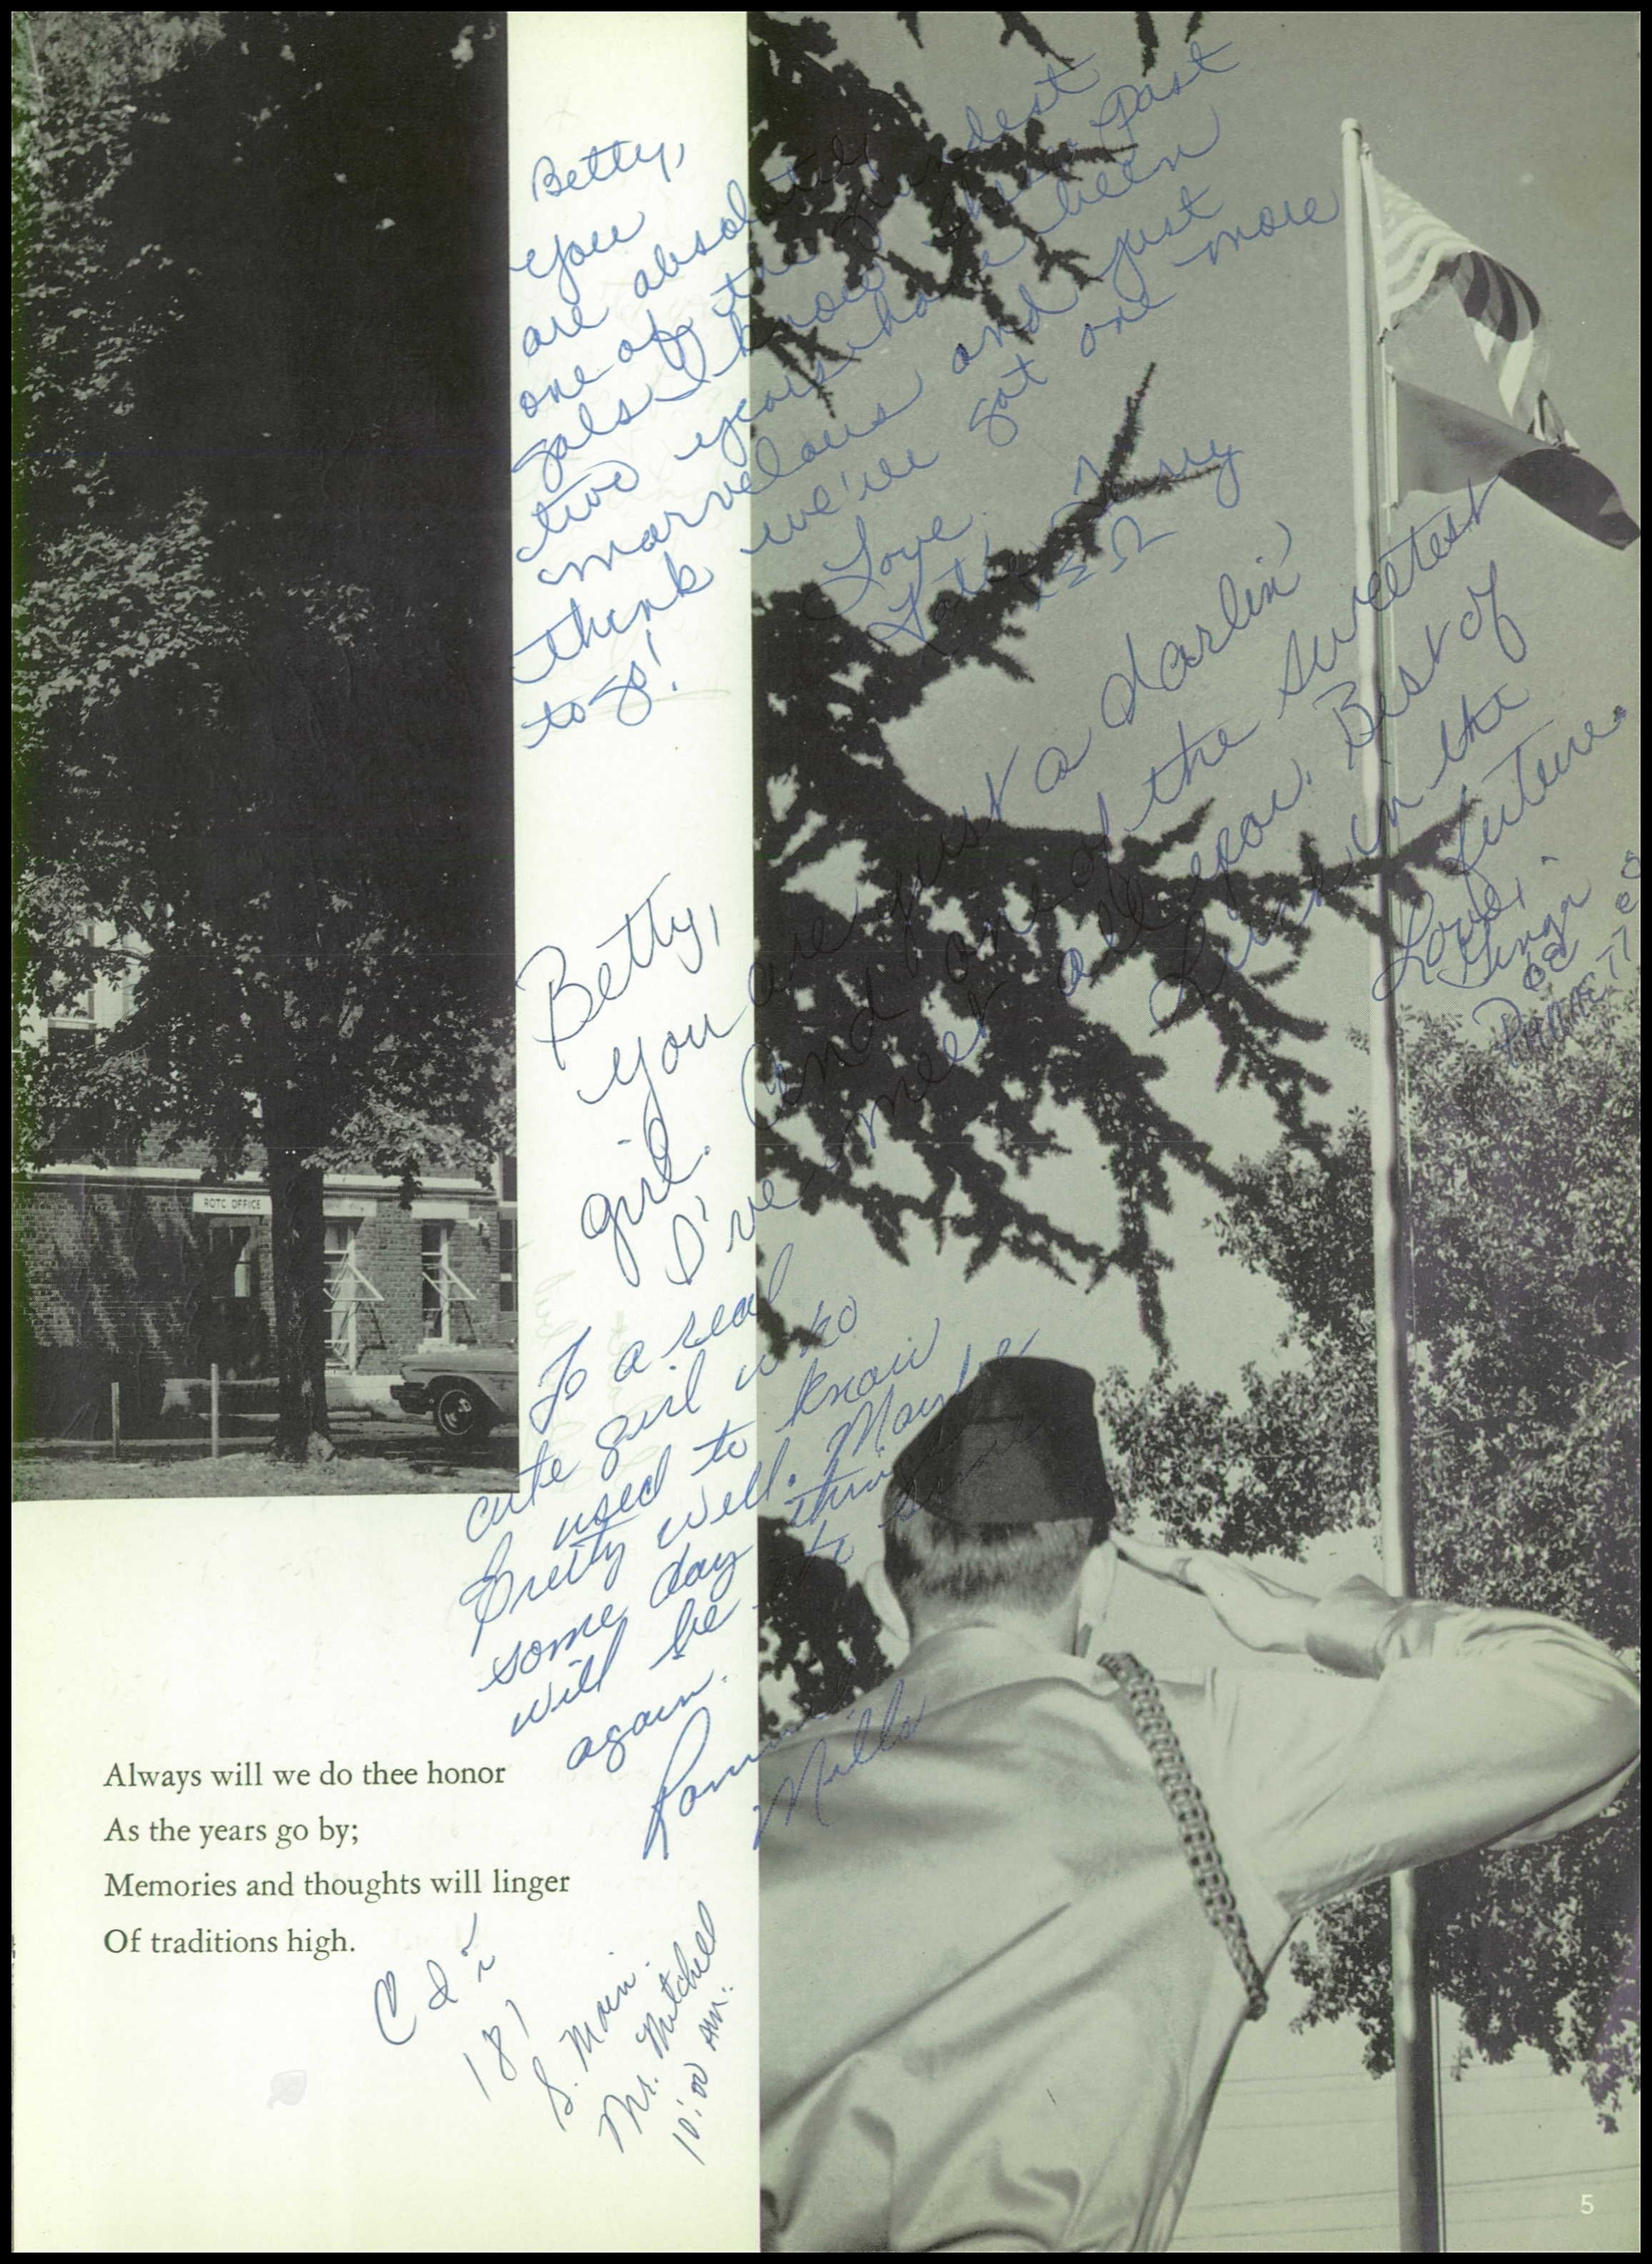 Betty,
You
are absolutely
one of the grandest
gals I know. These past
two years have been
marvelous and just
think we've got one more
to go!
Love
Terry
ΣΩ
Betty,
You are just a darlin'
girl. And one of the sweetest
I've meet all year. Best of
Luck in the
future.
Love,
ROTC OFFICE
To a real
cute girl who
used to know
Pretty well. Maybe
some day
will be
again.
Mills
Always will we do thee honor
As the years go by;
Memories and thoughts will linger
Of traditions high.
181
S. Main.
Mr. Mitchell
10:00 AM.
5